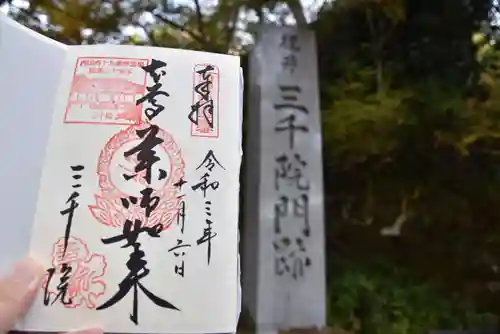 奉拝
令和三年
十一月六日
薬師如来
三千院
梶井
三千院門跡